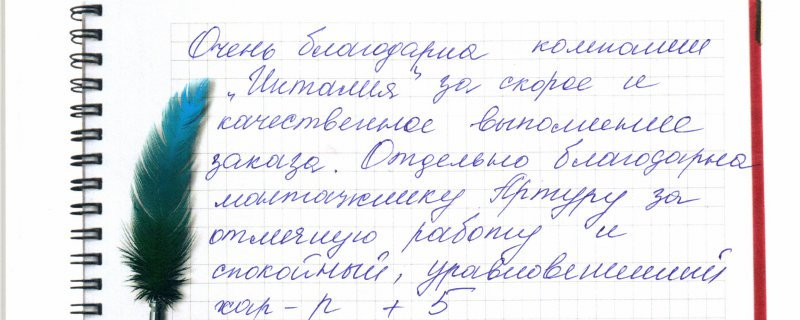 Очень благодарна компании
„Инталия" за скорое и
качественное выполнение
заказа. Отдельно благодарна
монтажнику Артуру за
отличную работу и
спокойный, уравновешенный
хар-р +5